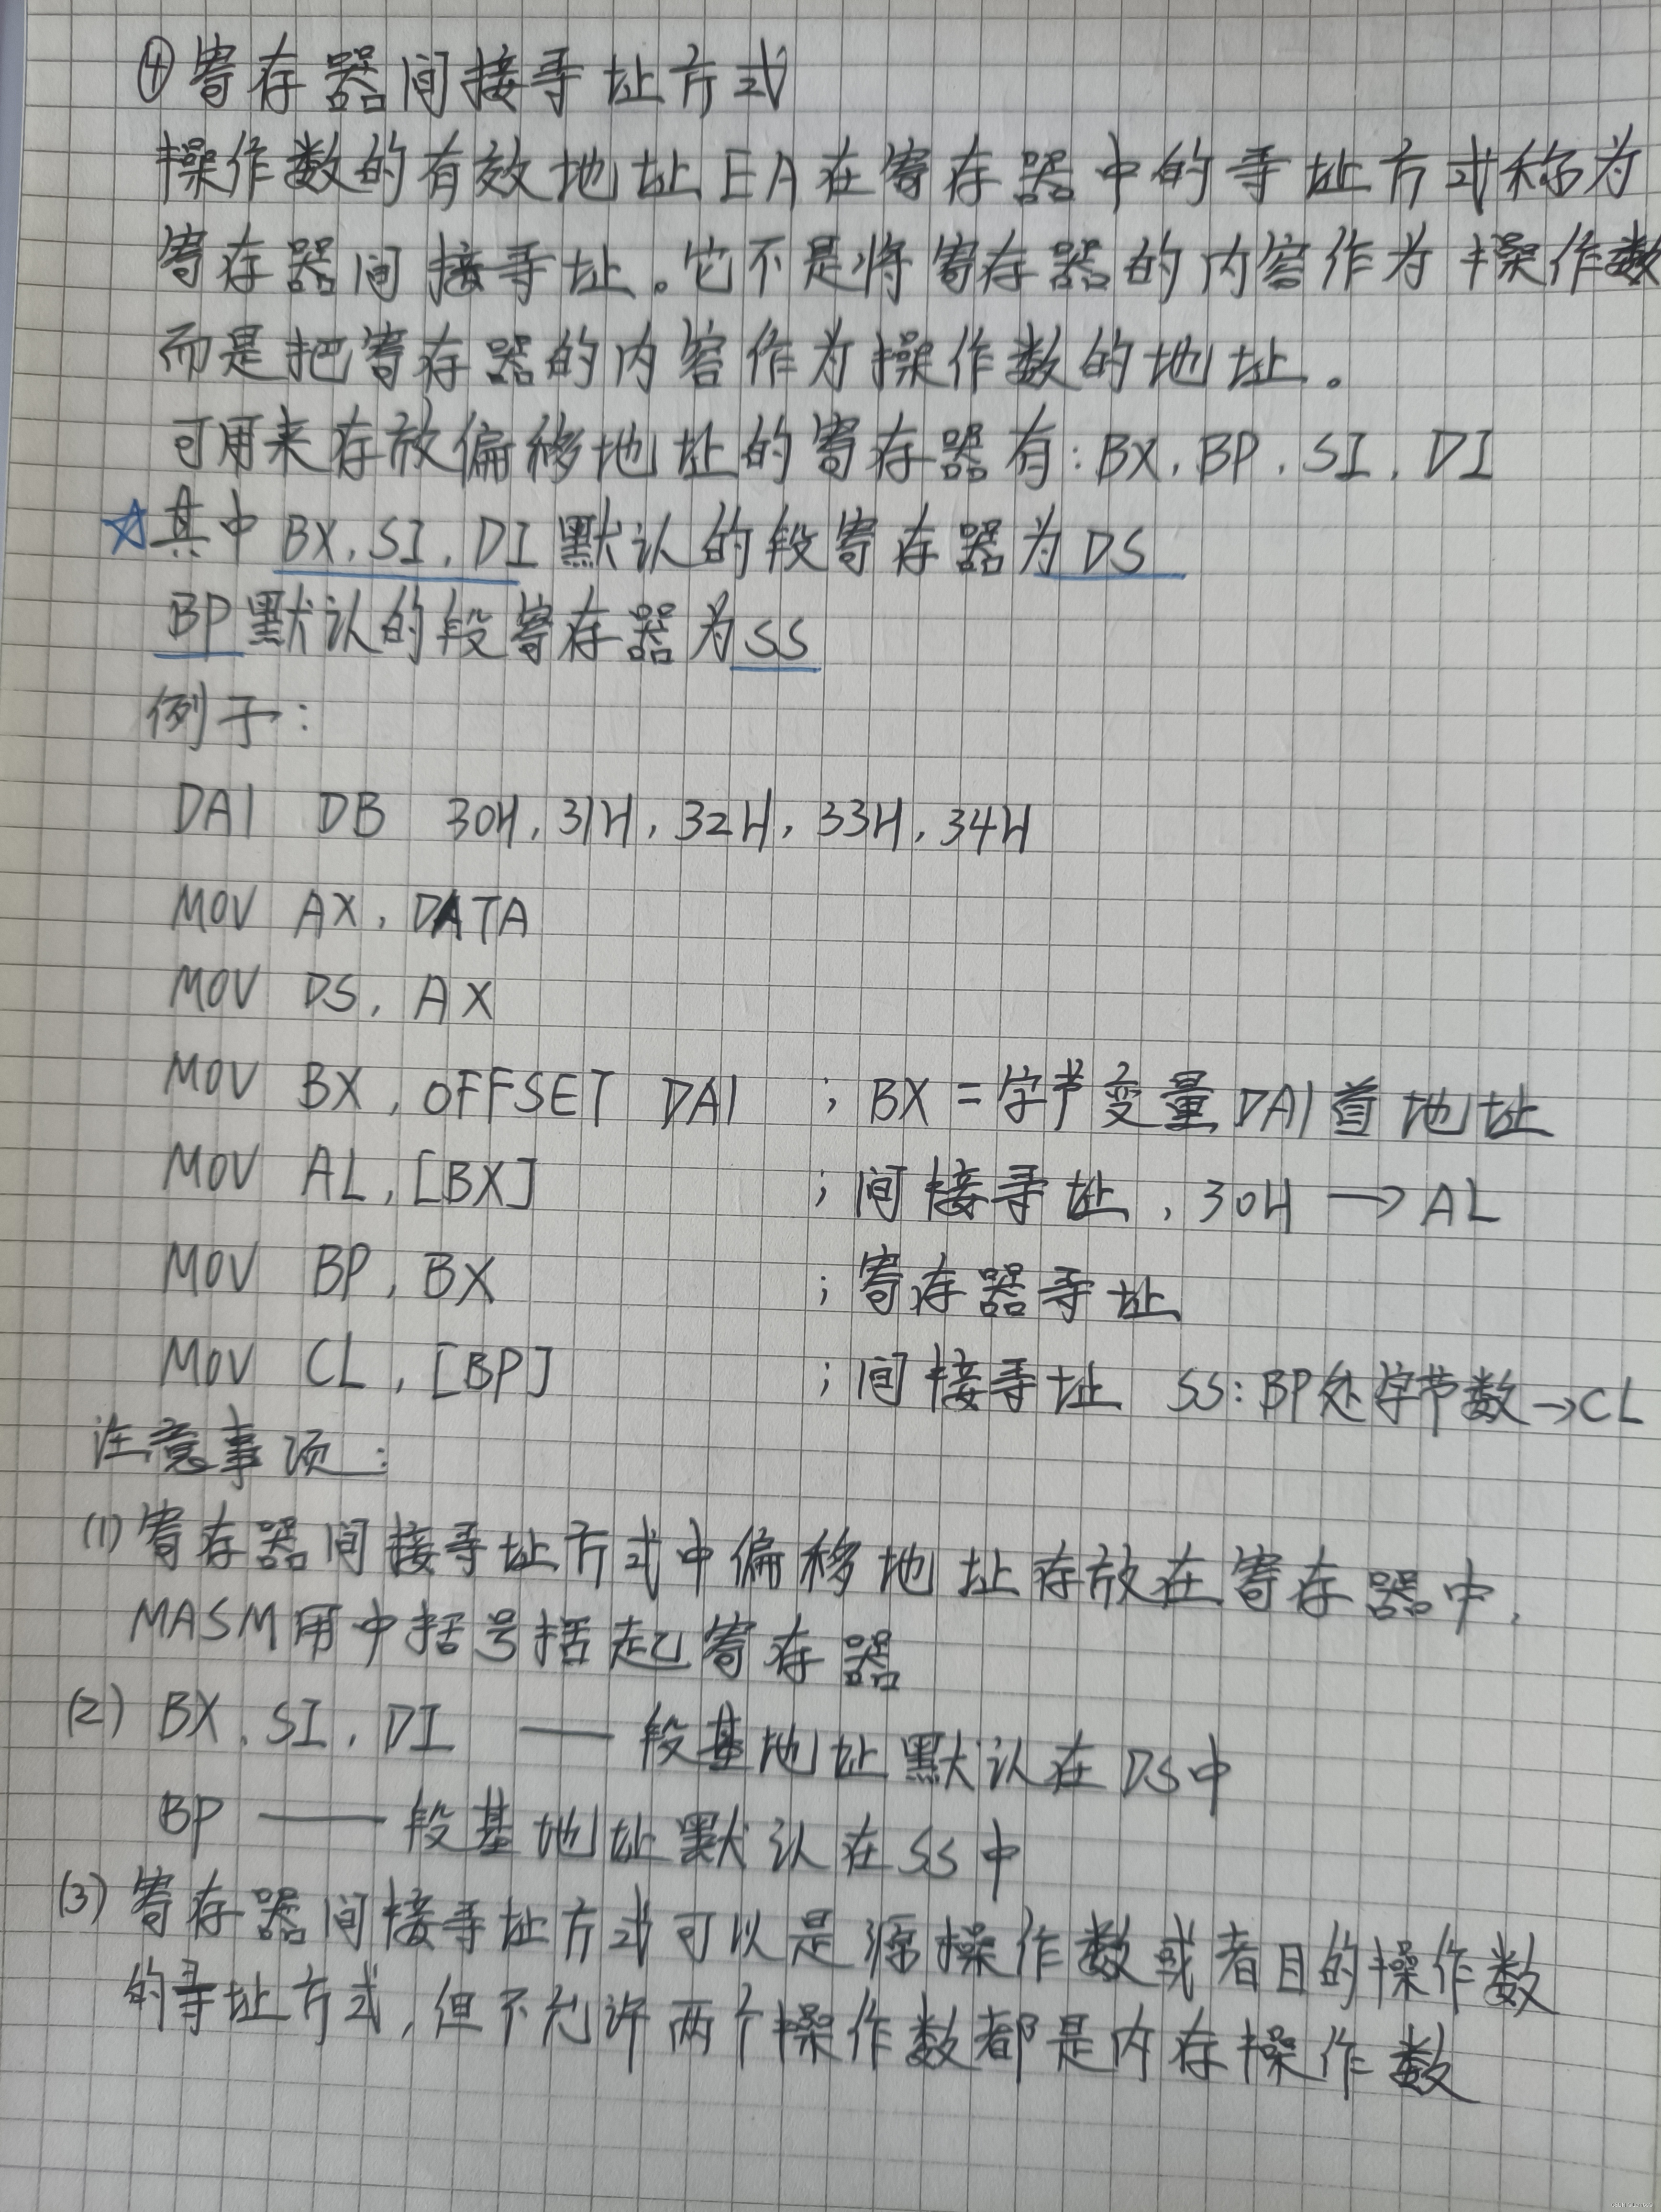 ④寄存器间接寻址方式
操作数的有效地址EA在寄存器中的寻址方式称为
寄存器间接寻址。它不是将寄存器的内容作为操作数
而是把寄存器的内容作为操作数的地址。
可用来存放偏移地址的寄存器有:BX,BP,SI,DI
☆其中BX,SI,DI默认的段寄存器为DS
BP默认的段寄存器为SS
例子:
DA1 DB 30H,31H,32H,33H,34H
MOV AX,DATA
MOV DS,AX
MOV BX,OFFSET DA1 ;BX=字节变量DA1首地址
MOV AL,[BX] ;间接寻址,30H→AL
MOV BP,BX ;寄存器寻址
MOV CL,[BP] ;间接寻址 SS:BP处字节数→CL
注意事项:
(1)寄存器间接寻址方式中偏移地址存放在寄存器中,
MASM用中括号括起寄存器
(2)BX,SI,DI —— 段基地址默认在DS中
BP —— 段基地址默认在SS中
(3)寄存器间接寻址方式可以是源操作数或者目的操作数
的寻址方式,但不允许两个操作数都是内存操作数